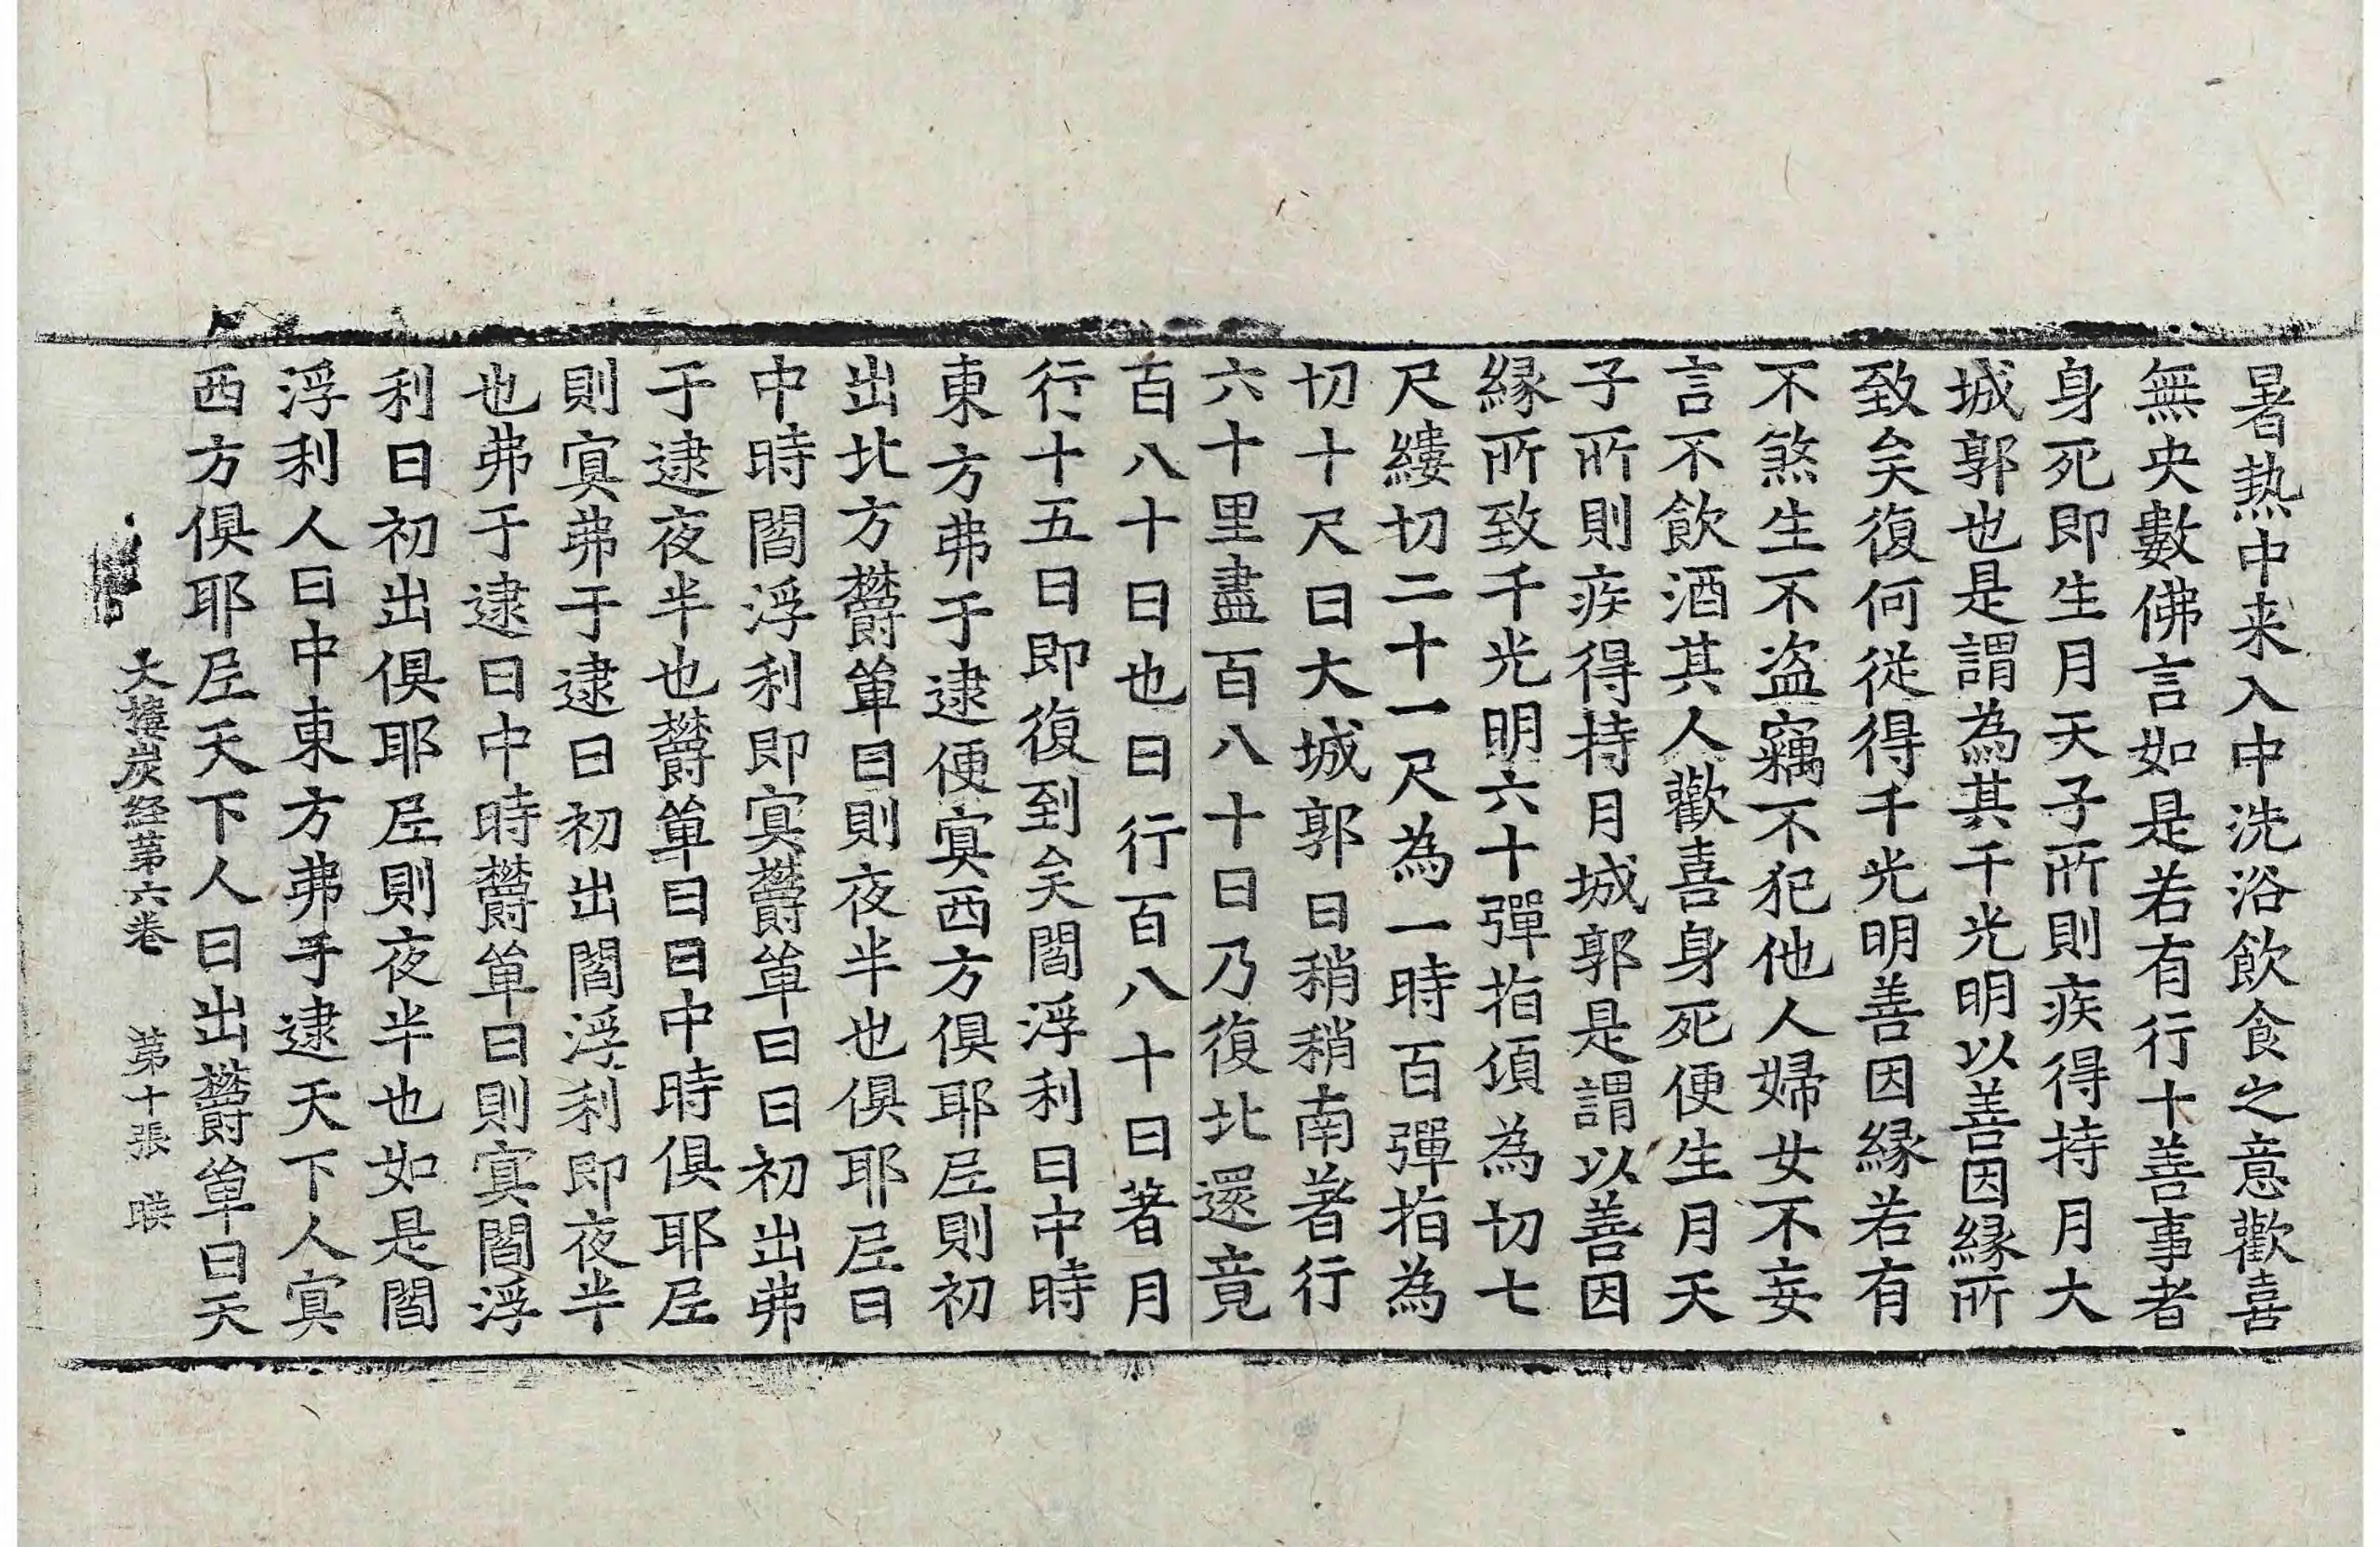 暑熱中来入中洗浴飲食之意歡喜
無央數佛言如是若有行十善事者
身死即生月天子所則疾得持月大
城郭也是謂為其千光明以善因縁所
致矣復何従得千光明善因縁若有
不煞生不盗竊不犯他人婦女不妄
言不飲酒其人歡喜身死便生月天
子所則疾得持月城郭是謂以善因
縁所致千光明六十彈指頃為切七
尺縷切二十一尺為一時百彈指為
切十尺日大城郭日稍稍南著行
六十里盡百八十日乃復北還竟
百八十日也日行百八十日著月
行十五日即復到矣閻浮利日中時
東方弗于逮便㝠西方俱耶尼則初
出北方欝單曰則夜半也俱耶尼日
中時閻浮利即㝠欝單曰日初出弗
于逮夜半也欝單曰日中時俱耶尼
則㝠弗于逮日初出閻浮利即夜半
也弗于逮日中時欝單曰則㝠閻浮
利日初出俱耶尼則夜半也如是閻
浮利人日中東方弗于逮天下人㝠
西方俱耶尼天下人日出欝單曰天
大樓炭経苐六卷 苐十張